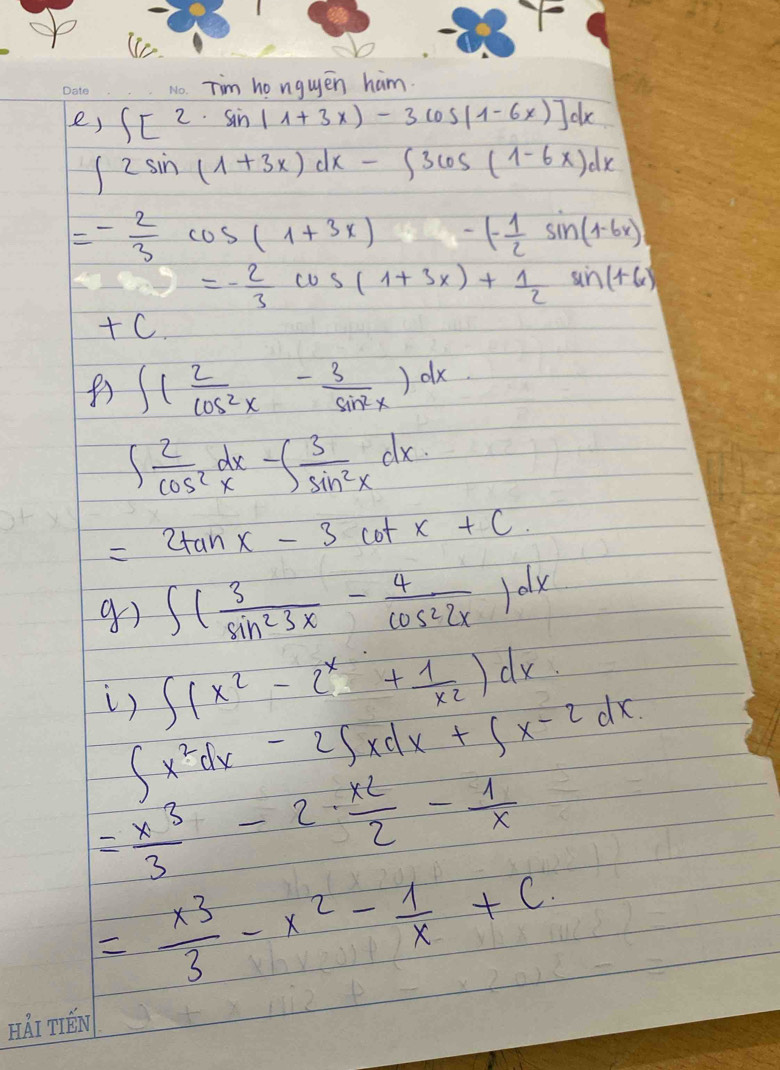 Date No. Tìm họ nguyên hàm.
e, ∫[ 2 · sin(1+3x) - 3cos(1-6x)]dx
∫ 2sin (1+3x) dx - ∫3cos (1-6x)dx
= - 2/3 cos(1+3x) - (-1/2 sin(1-6x)
= - 2/3 cos(1+3x) + 1/2 sin(1-6x)
+ C.
f) ∫( 2/cos²x - 3/sin²x ) dx.
∫ 2/cos²x dx - ∫ 3/sin²x dx.
= 2tan x - 3 cot x + C.
g) ∫( 3/sin²3x - 4/cos²2x ) dx
i) ∫(x² - 2ˣ + 1/x² ) dx.
∫ x²dx - 2∫xdx + ∫ x⁻² dx.
= x³/3 - 2 · x²/2 - 1/x
= x³/3 - x² - 1/x + C.
HẢI TIẾN